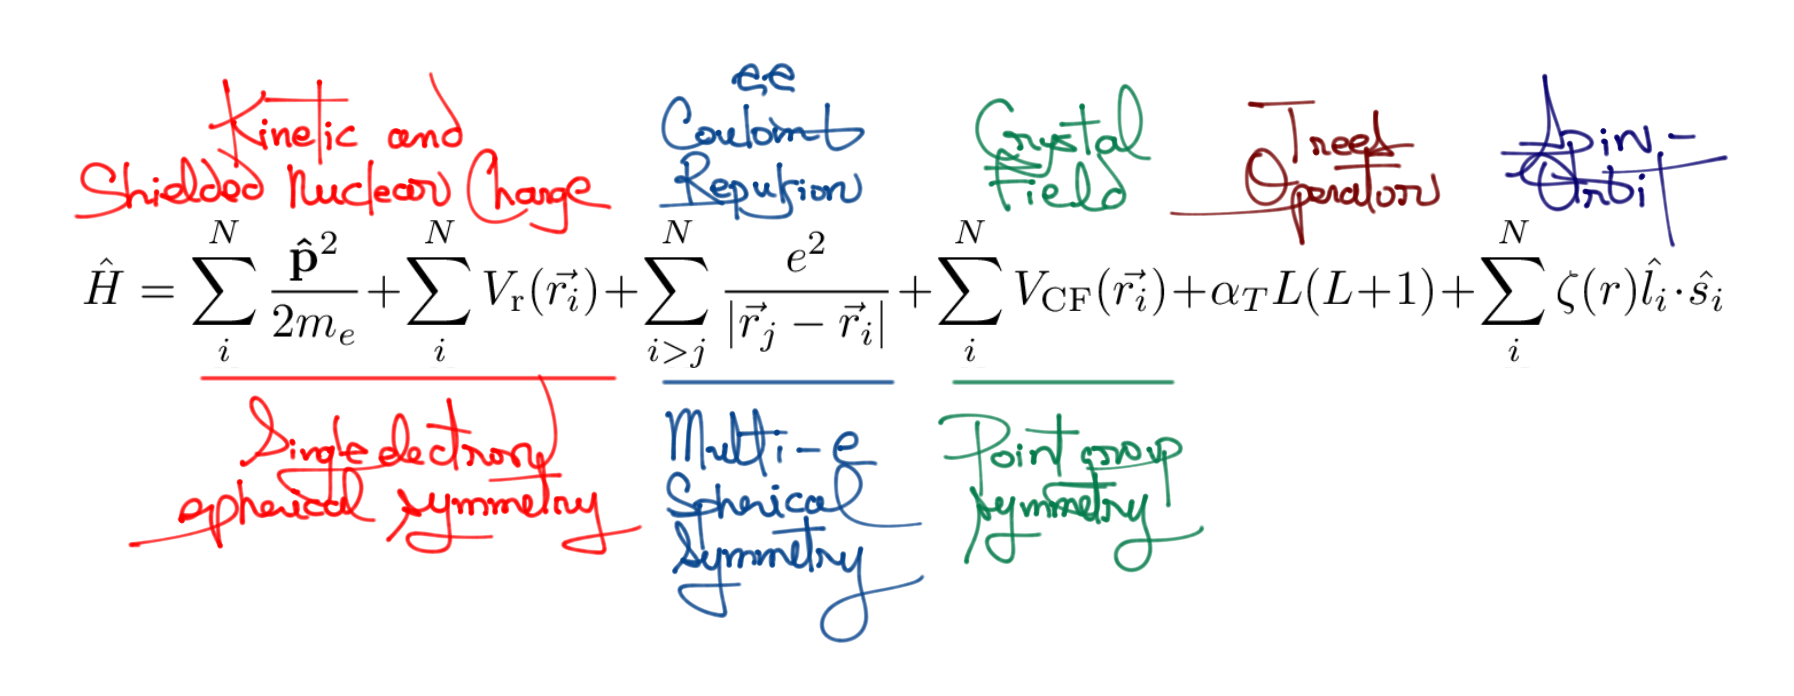 Kinetic and
Shielded Nuclear Charge
e,e
Coulomb
Repulsion
Crystal
Field
Trees
Operator
Spin-
Orbit
$\hat{H} = \sum_{i}^{N} \frac{\hat{\mathbf{p}}^2}{2m_e} + \sum_{i}^{N} V_{\mathrm{r}}(\vec{r_i}) + \sum_{i>j}^{N} \frac{e^2}{|\vec{r}_j - \vec{r}_i|} + \sum_{i}^{N} V_{\mathrm{CF}}(\vec{r_i}) + \alpha_T L(L+1) + \sum_{i}^{N} \zeta(r) \hat{l_i} \cdot \hat{s_i}$
Single electron
spherical symmetry
Multi-e
Spherical
Symmetry
Point group
symmetry